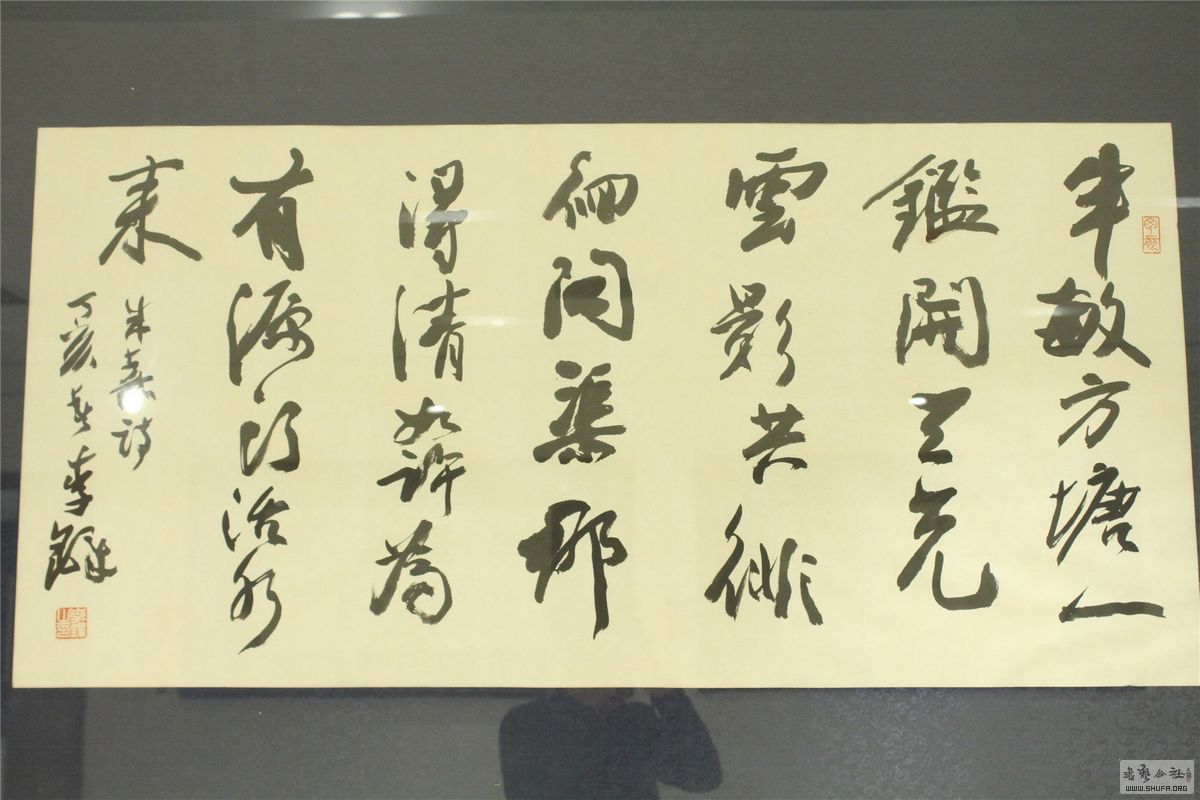 半畝方塘一
鑑開天光
雲影共徘
徊問渠那
得清如許為
有源頭活水
來
朱熹詩
丁亥春李鐸
书艺公社
WWW.SHUFA.ORG